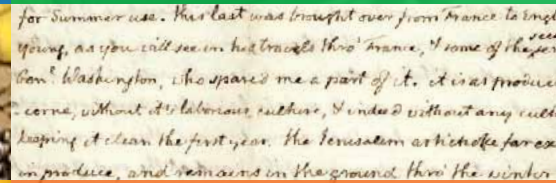 for Summer use. this last was brought over from France to Eng
young, as you will see in his travels thro' France, & some of the seed
Gen.l Washington, who spared me a part of it. it is as produc
corne, without it's laborious culture, & indeed without any cult
keeping it clean the first year. the Jerusalem artichoke far ex
in produce, and remains in the ground thro' the winter